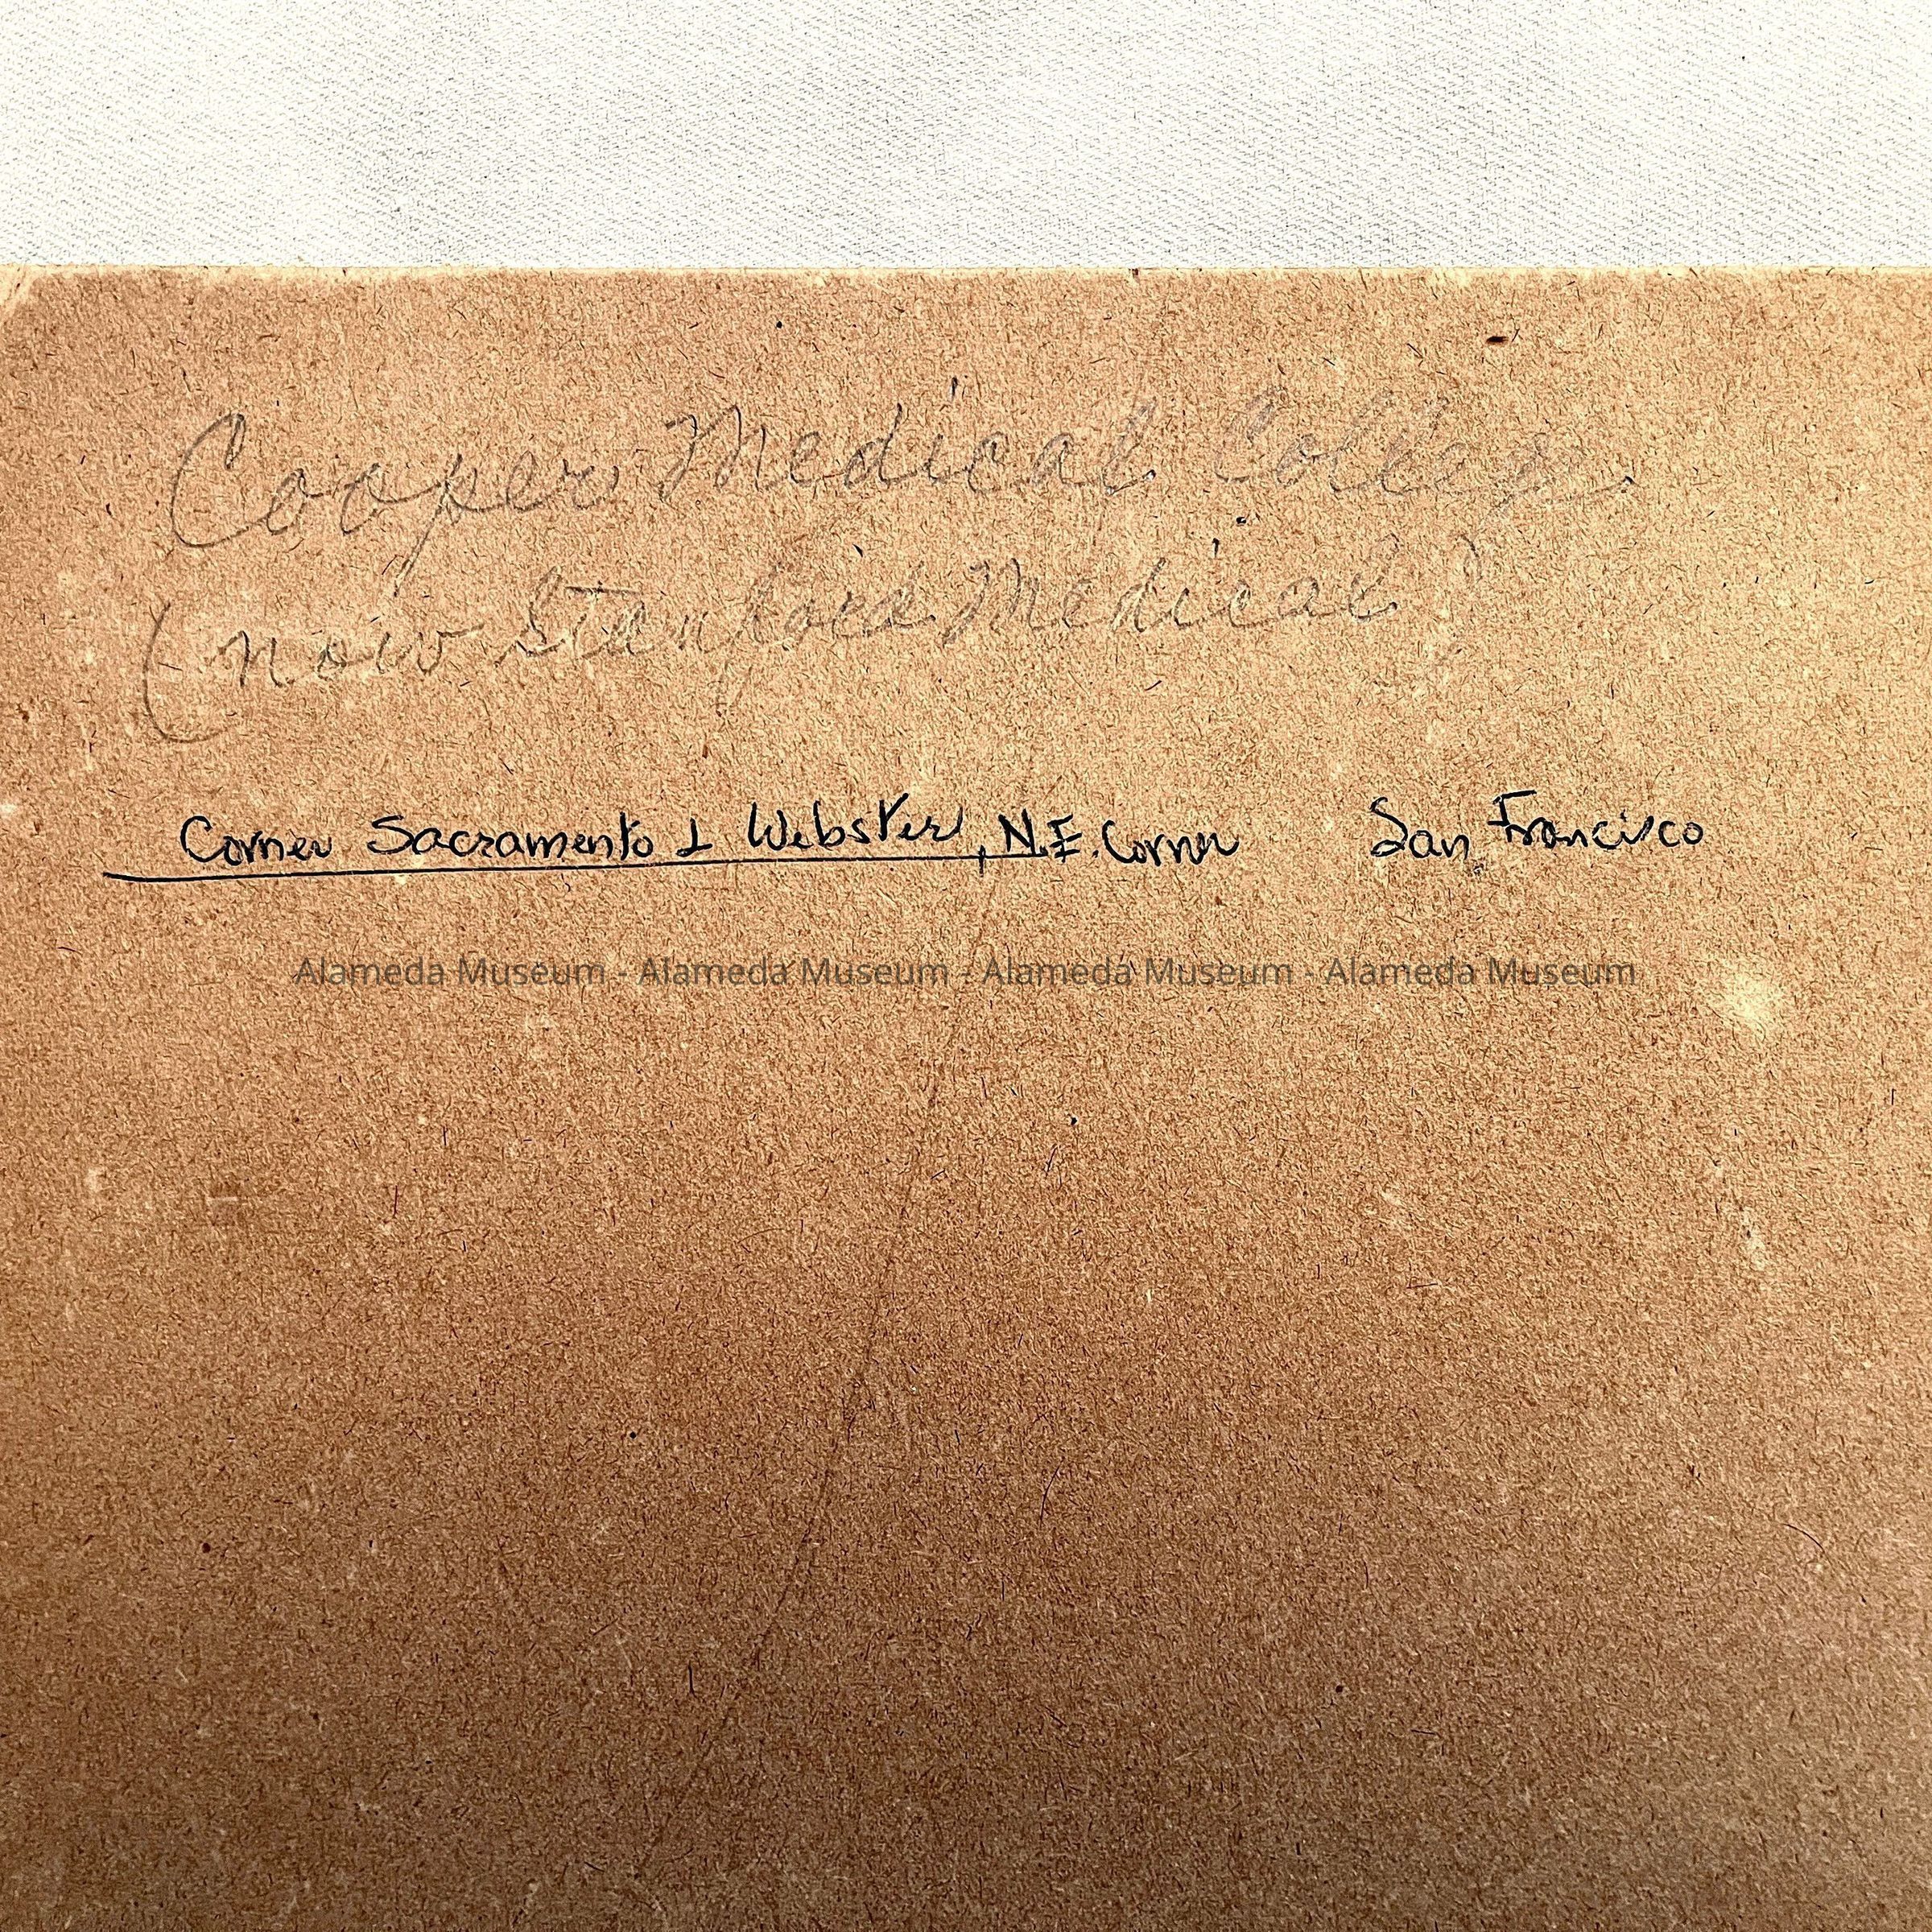 Cooper Medical College
(now Stanford Medical)
Corner Sacramento & Webster, N.E. Corner San Francisco
Alameda Museum - Alameda Museum - Alameda Museum - Alameda Museum